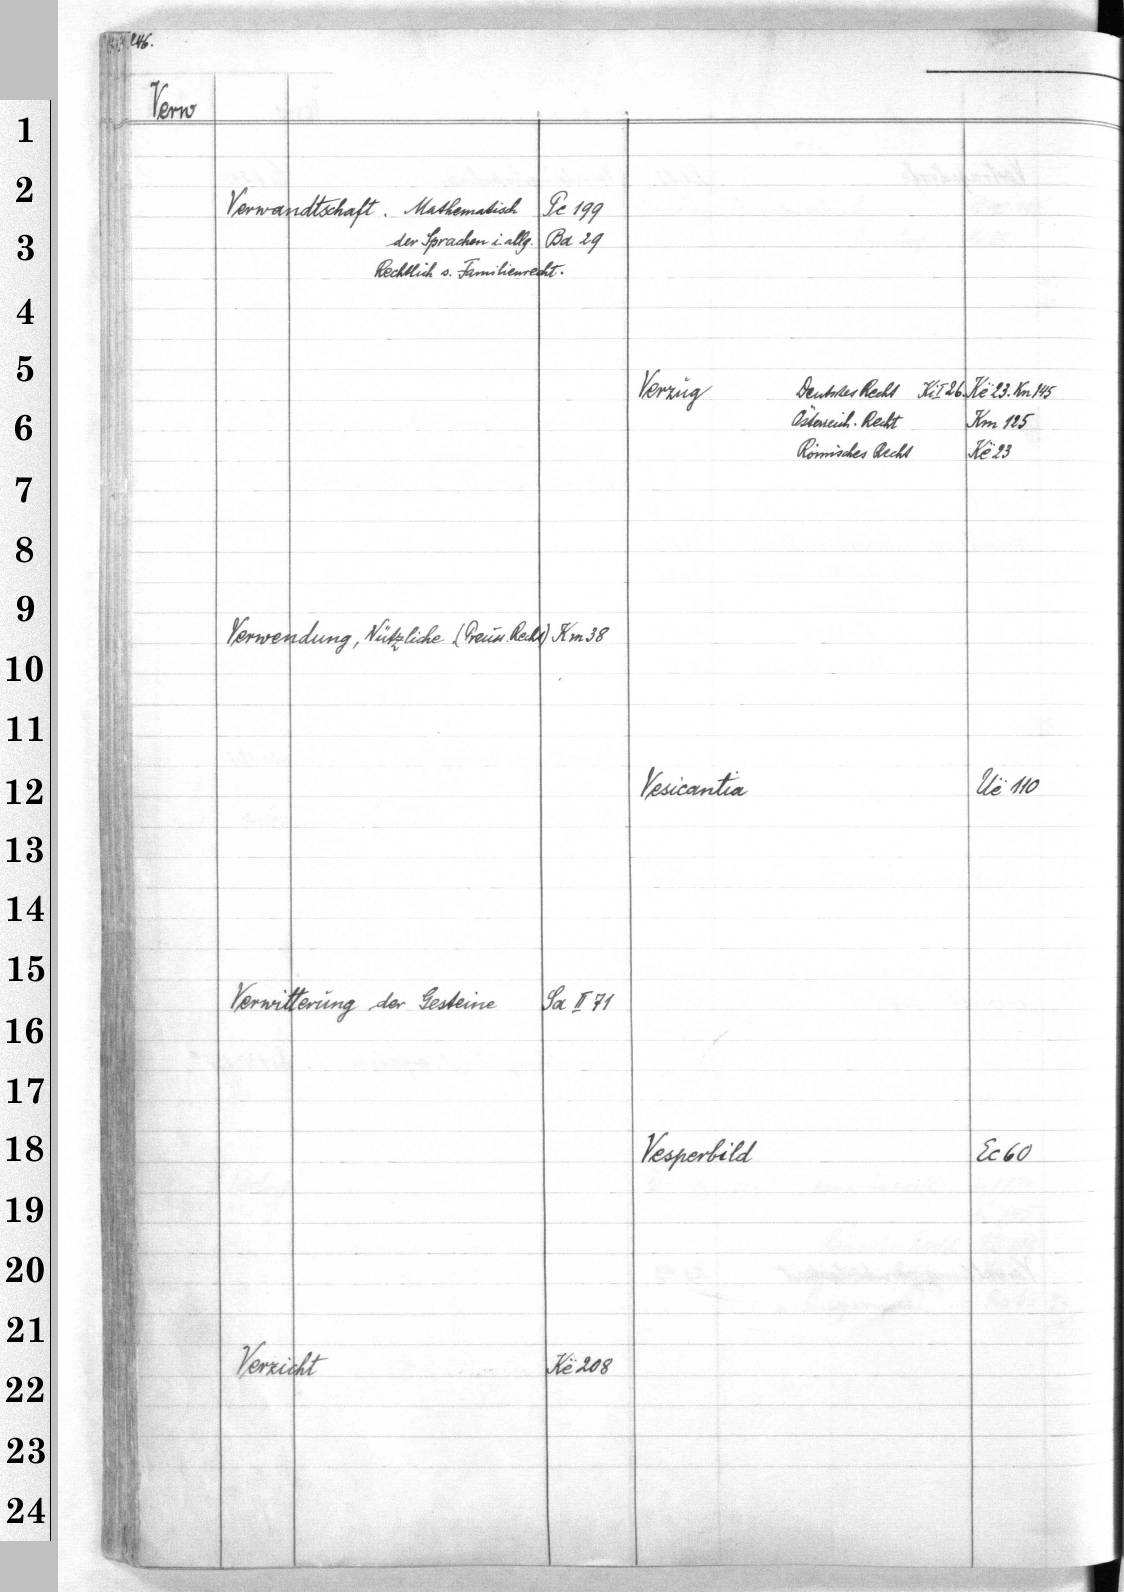 246.
Verw
Verwandtschaft. Mathematisch Pc 199
der Sprachen i. allg. Ba 29
Rechtlich s. Familienrecht.
Verzug Deutsches Recht Ki I 26. Kë 23. Kn 145
Österreich. Recht Km 125
Römisches Recht Kë 23
Verwendung, Nützliche (Preuss. Recht) Km 38
Vesicantia Uë 110
Verwitterung der Gesteine Sa II 71
Vesperbild Ec 60
Verzicht Kë 208
1
2
3
4
5
6
7
8
9
10
11
12
13
14
15
16
17
18
19
20
21
22
23
24